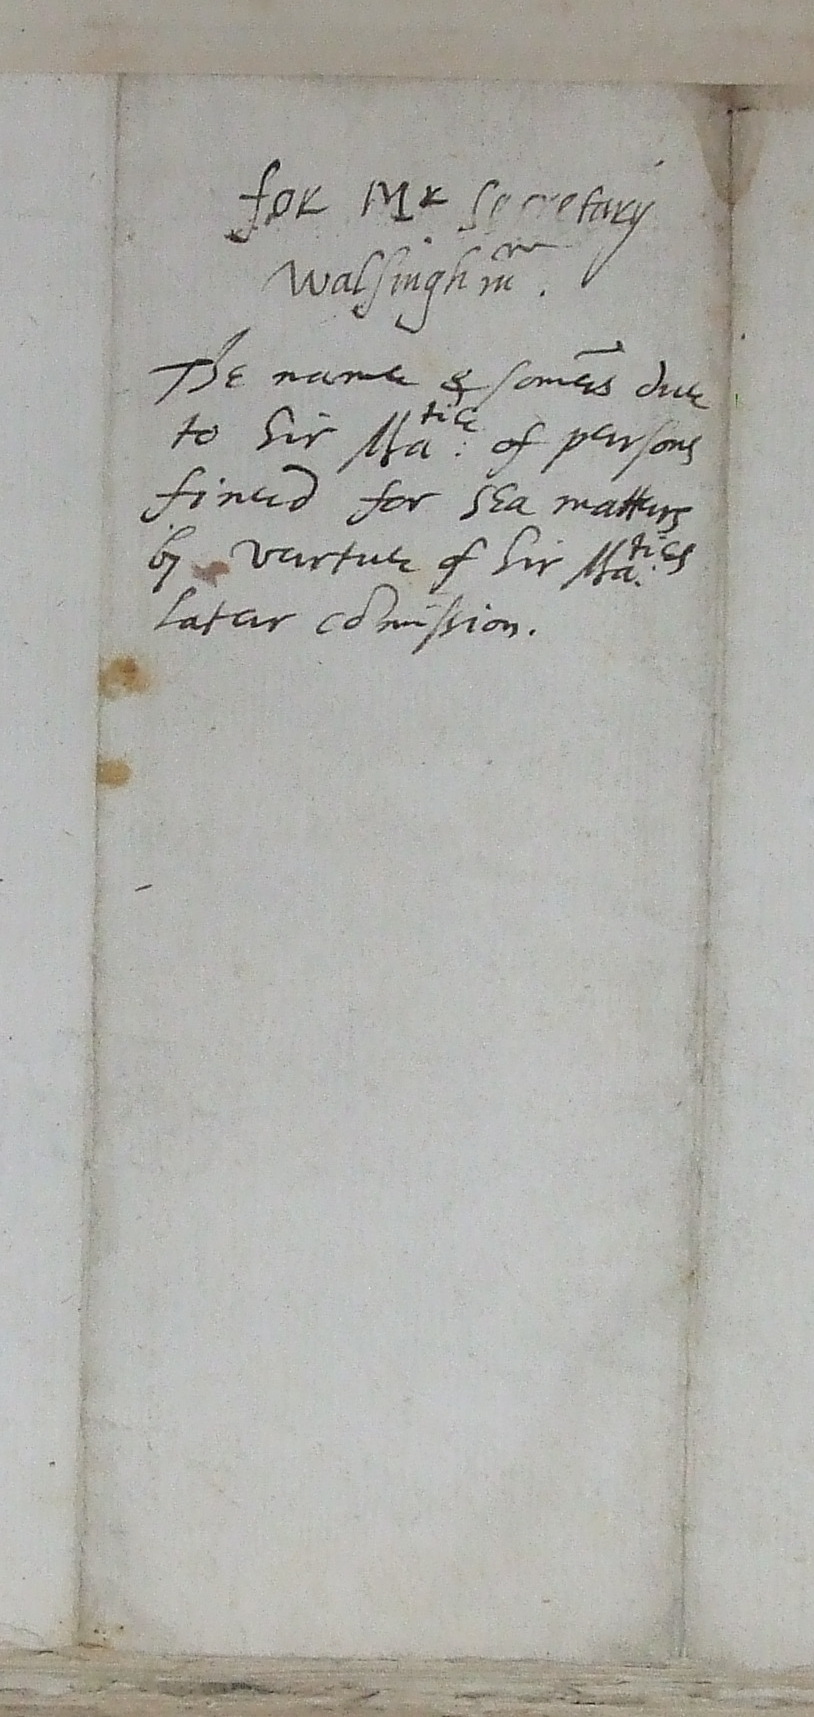 for Mr Secretary
Walsinghm.
The name & somes due
to hir Ma:tie of persons
fined for sea matters
by vertue of hir Ma:ties
later comission.